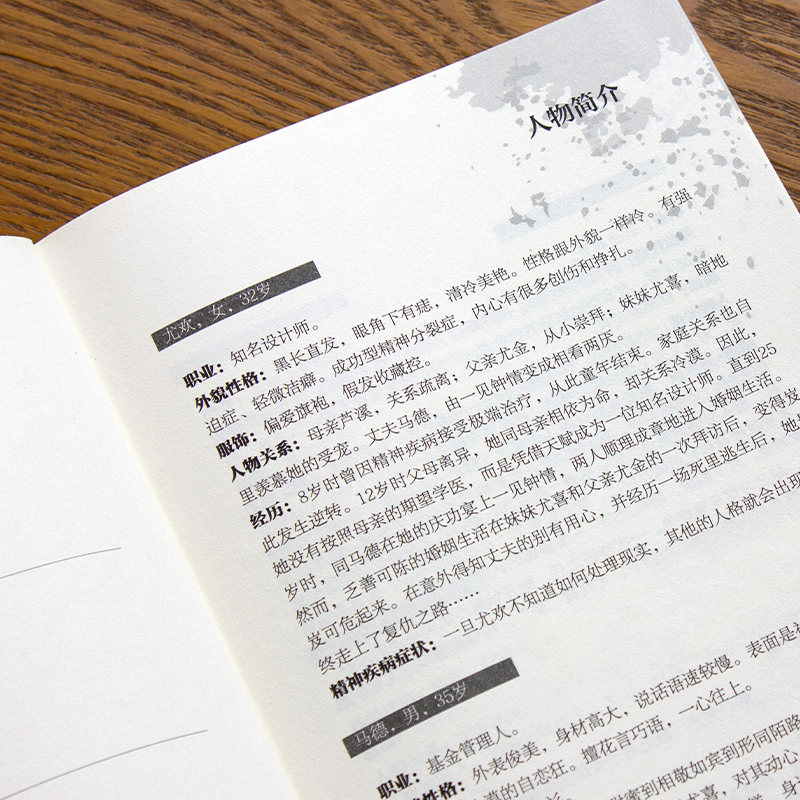 人物简介
尤欢，女，32岁
职业：知名设计师。
外貌性格：黑长直发，眼角下有痣，清冷美艳。性格跟外貌一样冷。有强
迫症、轻微洁癖。成功型精神分裂症，内心有很多创伤和挣扎。
服饰：偏爱旗袍，假发收藏控。
人物关系：母亲芦溪，关系疏离；父亲尤金，从小崇拜；妹妹尤喜，暗地
里羡慕她的受宠。丈夫马德，由一见钟情变成相看两厌。
经历：8岁时曾因精神疾病接受极端治疗，从此童年结束。家庭关系也自
此发生逆转。12岁时父母离异，她同母亲相依为命，却关系冷漠。因此，
她没有按照母亲的期望学医，而是凭借天赋成为一位知名设计师。直到25
岁时，同马德在她的庆功宴上一见钟情，两人顺理成章地进入婚姻生活。
然而，乏善可陈的婚姻生活在妹妹尤喜和父亲尤金的一次拜访后，变得岌
岌可危起来。在意外得知丈夫的别有用心，并经历一场死里逃生后，她
终走上了复仇之路……
精神疾病症状：一旦尤欢不知道如何处理现实，其他的人格就会出现
马德，男，35岁
职业：基金管理人。
性格：外表俊美，身材高大，说话语速较慢。表面是
的自恋狂。擅花言巧语，一心往上。
密到相敬如宾到形同陌路
尤喜，对其动心